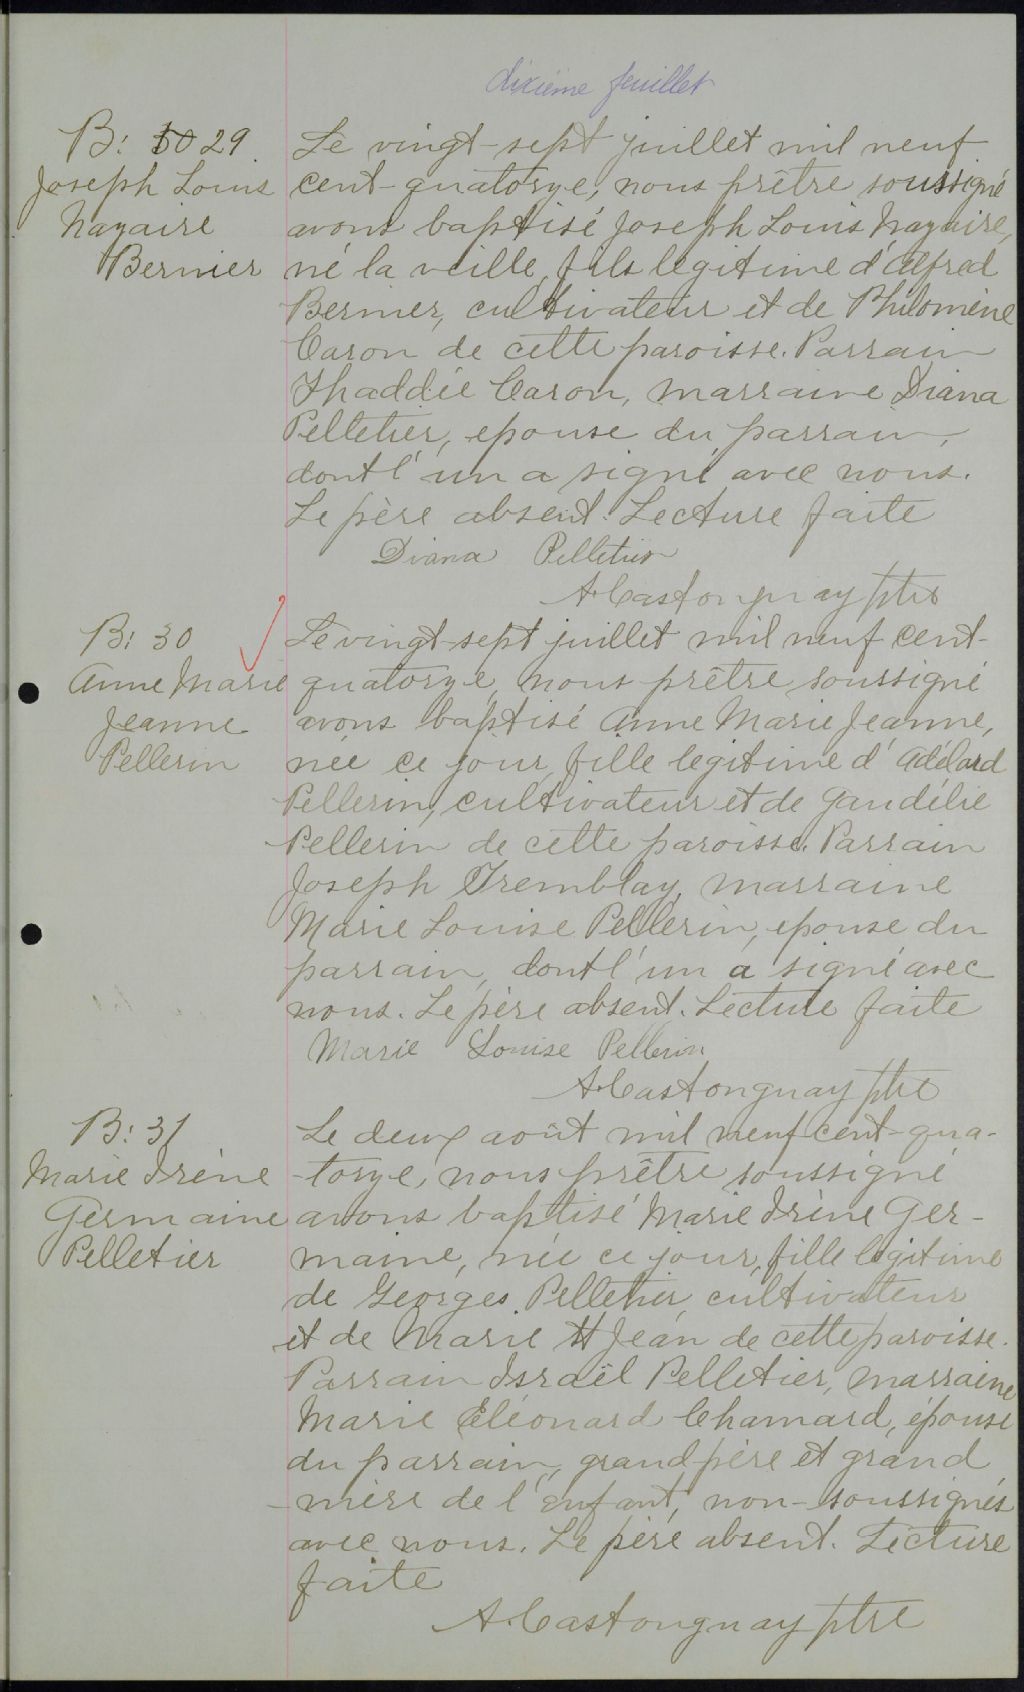 dixième feuillet
B: 29
Joseph Louis
Nazaire
Bernier
Le vingt-sept juillet mil neuf
cent-quatorze, nous prêtre soussigné
avons baptisé Joseph Louis Nazaire,
né la veille, fils legitime d'Alfred
Bernier, cultivateur et de Philomène
Caron de cette paroisse. Parrain
Thaddée Caron, marraine Diana
Pelletier, epouse du parrain,
dont l'un a signé avec nous.
Le père absent. Lecture faite
Diana Pelletier
A. Castonguay ptre
B: 30
Anne Marie
Jeanne
Pellerin
Le vingt-sept juillet mil neuf cent-
quatorze, nous prêtre soussigné
avons baptisé Anne Marie Jeanne,
née ce jour, fille legitime d'Adélard
Pellerin, cultivateur et de Gaudélie
Pellerin de cette paroisse. Parrain
Joseph Tremblay, marraine
Marie Louise Pellerin, epouse du
parrain, dont l'un a signé avec
nous. Le père absent. Lecture faite
Marie Louise Pellerin
A. Castonguay ptre
B: 31
Marie Irène
Germaine
Pelletier
Le deux août mil neuf cent-qua-
-torze, nous prêtre soussigné
avons baptisé Marie Irène Ger-
maine, née ce jour, fille legitime
de Georges Pelletier cultivateur
et de Marie St Jean de cette paroisse.
Parrain Israël Pelletier, marraine
Marie Eléonard Chamard, épouse
du parrain, grand père et grand
-mère de l'enfant, non-soussignés
avec nous. Le père absent. Lecture
faite
A. Castonguay ptre